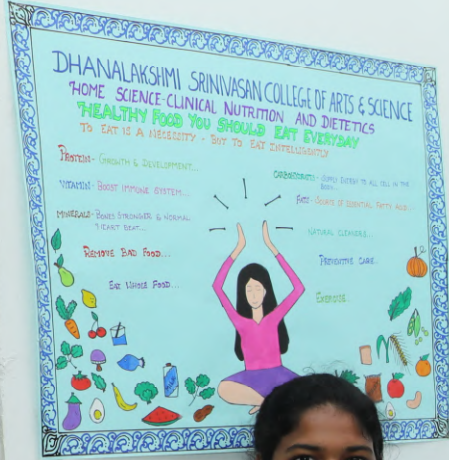 DHANALAKSHMI SRINIVASAN COLLEGE OF ARTS & SCIENCE
HOME SCIENCE-CLINICAL NUTRITION AND DIETETICS
HEALTHY FOOD YOU SHOULD EAT EVERYDAY
TO EAT IS A NECESSITY - BUT TO EAT INTELLIGENTLY
PROTEIN- GROWTH & DEVELOPMENT...
VITAMIN- BOOST IMMUNE SYSTEM...
MINERALS- BONES STRONGER & NORMAL
HEART BEAT...
REMOVE BAD FOOD...
EAT WHOLE FOOD...
SUPPLY ENERGY TO ALL CELL IN THE
BODY...
FATS- SOURCE OF ESSENTIAL FATTY ACID...
NATURAL CLEANSERS...
PREVENTIVE CARE..
EXERCISE..